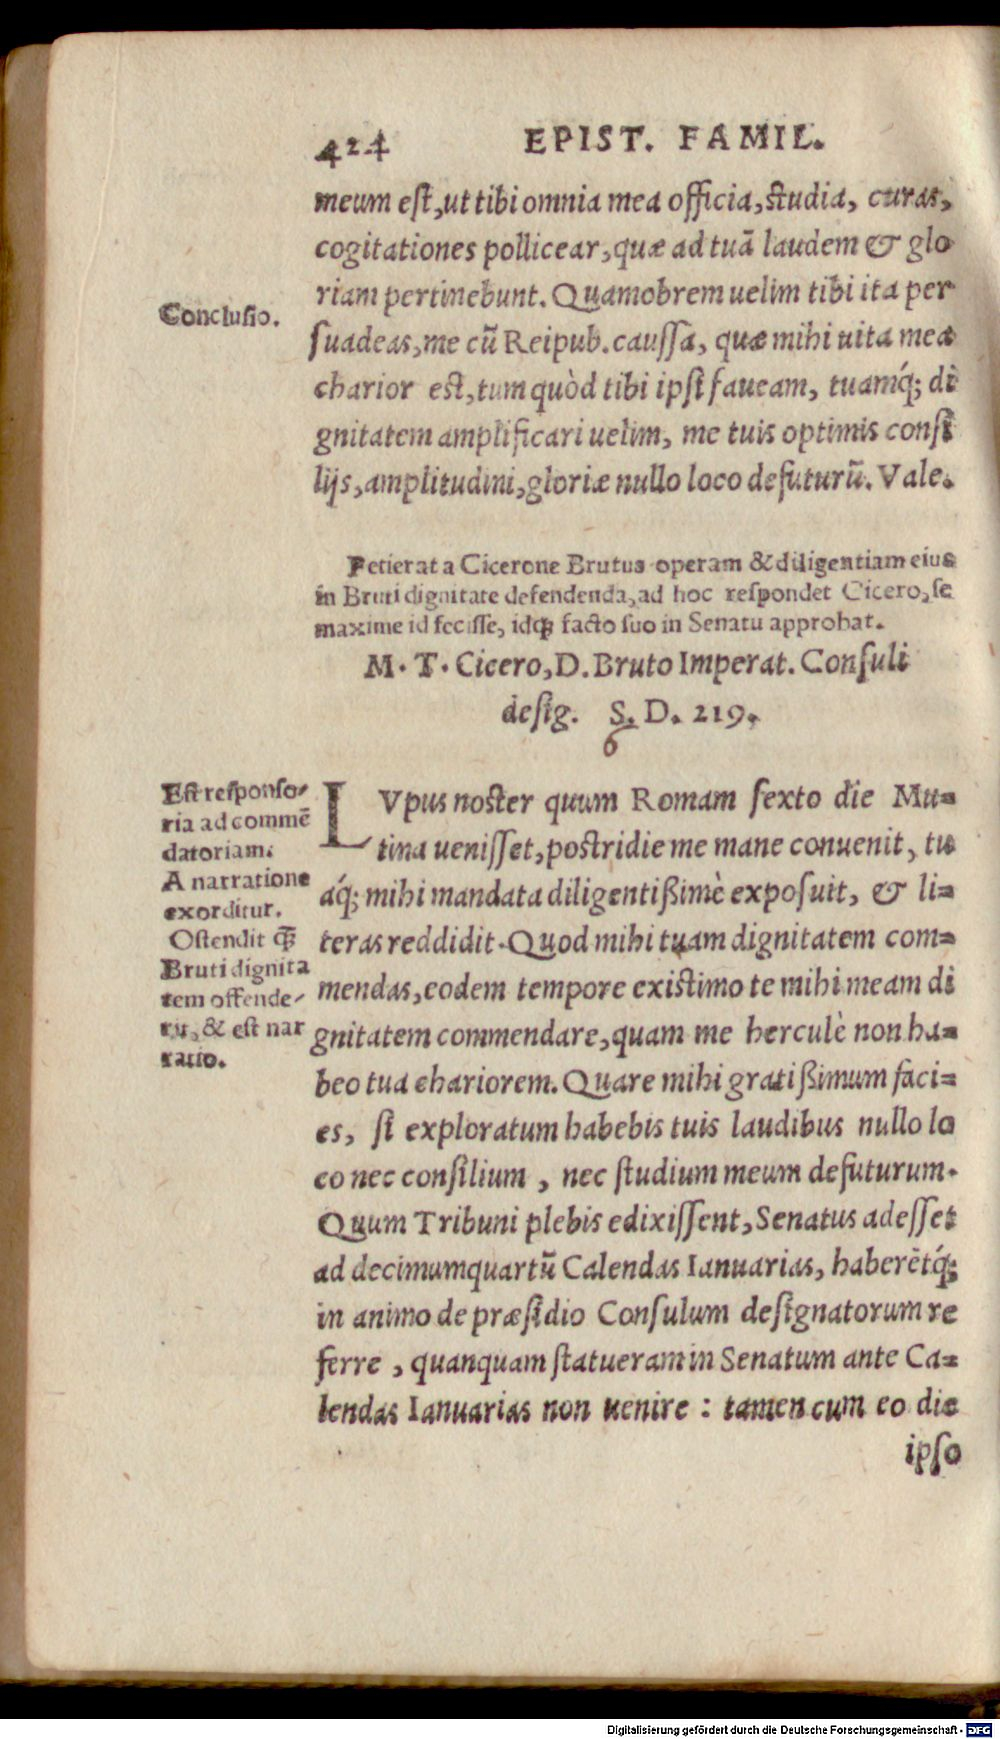 424 EPIST. FAMIL.
meum est, ut tibi omnia mea officia, studia, curas,
cogitationes pollicear, quæ ad tuā laudem & glo
riam pertinebunt. Quamobrem uelim tibi ita per
Conclusio.
suadeas, me cū Reipub. caussa, quæ mihi uita mea
charior est, tum quòd tibi ipsi faueam, tuamq́; di
gnitatem amplificari uelim, me tuis optimis consi
lijs, amplitudini, gloriæ nullo loco defuturū. Vale.
Petierat a Cicerone Brutus operam & diligentiam eius
in Bruti dignitate defendenda, ad hoc respondet Cicero, se
maxime id fecisse, idq; facto suo in Senatu approbat.
M. T. Cicero, D. Bruto Imperat. Consuli
desig. S. D. 219.
6
Est responso-
ria ad commē
datoriam.
A narratione
exorditur.
Ostendit q̄
Bruti dignita
tem offende-
ru, & est nar
ratio.
LVpus noster quum Romam sexto die Mu-
tina uenisset, postridie me mane conuenit, tu
aq́; mihi mandata diligentißimè exposuit, & li-
teras reddidit. Quod mihi tuam dignitatem com-
mendas, eodem tempore existimo te mihi meam di
gnitatem commendare, quam me herculè non ha-
beo tua chariorem. Quare mihi gratißimum faci-
es, si exploratum habebis tuis laudibus nullo lo
co nec consilium, nec studium meum defuturum.
Quum Tribuni plebis edixissent, Senatus adesset
ad decimumquartū Calendas Ianuarias, haberētq́;
in animo de præsidio Consulum designatorum re
ferre, quanquam statueram in Senatum ante Ca-
lendas Ianuarias non uenire: tamen cum eo die
ipso
Digitalisierung gefördert durch die Deutsche Forschungsgemeinschaft - DFG